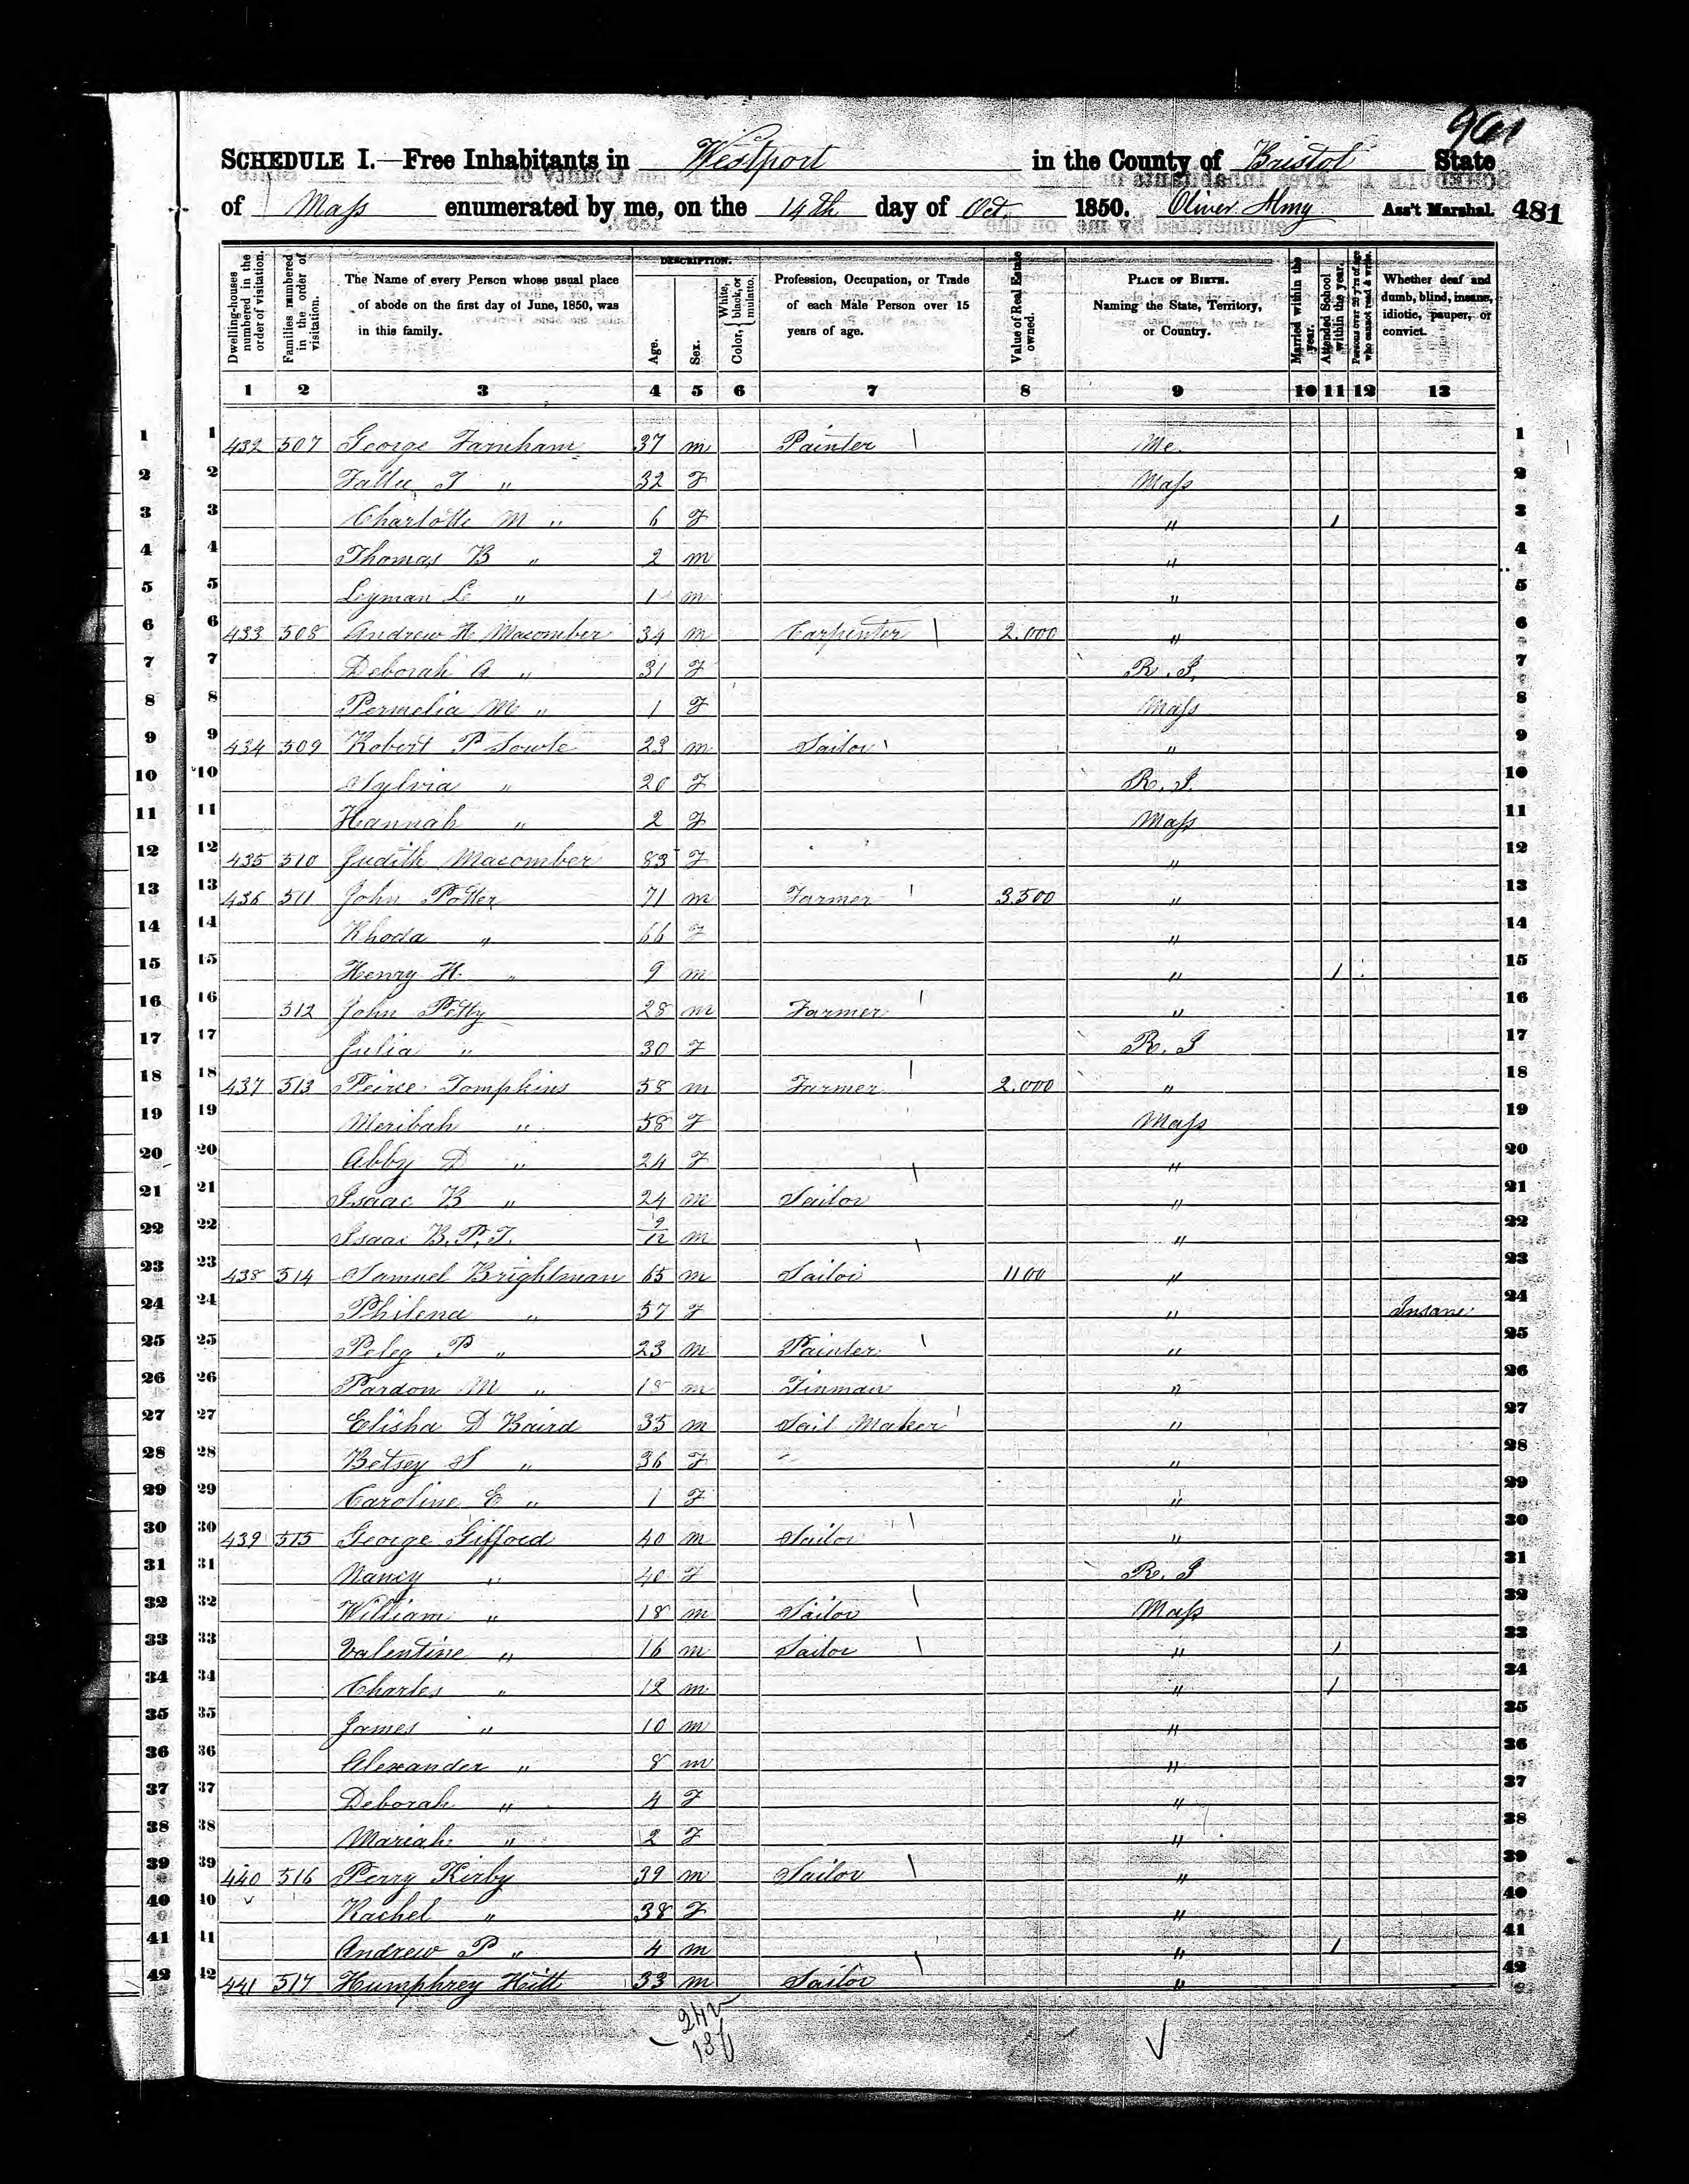 961
SCHEDULE I.—Free Inhabitants in Westport in the County of Bristol State
of Mass enumerated by me, on the 14th day of Oct. 1850. Oliver Almy Ass't Marshal. 481
Dwelling-houses numbered in the order of visitation.
Families numbered in the order of visitation.
The Name of every Person whose usual place of abode on the first day of June, 1850, was in this family.
DESCRIPTION.
Age.
Sex.
Color, { White, black, or mulatto.
Profession, Occupation, or Trade of each Male Person over 15 years of age.
Value of Real Estate owned.
PLACE OF BIRTH. Naming the State, Territory, or Country.
Married within the year.
Attended School within the year.
Persons over 20 y'rs of age who cannot read & write.
Whether deaf and dumb, blind, insane, idiotic, pauper, or convict.
1 2 3 4 5 6 7 8 9 10 11 12 13
1 1 432 507 George Farnham 37 m Painter Me. 1
2 2 J " 32 F Mass 2
3 3 Charlotte M " 6 F " 1 3
4 4 Thomas B " 2 m " 4
5 5 Lyman L " 1 m " 5
6 6 433 508 Andrew H Macomber 34 m Carpenter 2.000 " 6
7 7 Deborah A " 31 F R.I. 7
8 8 Permelia M " 1 F Mass 8
9 9 434 509 Robert P Sowle 23 m Sailor " 9
10 10 Sylvia " 20 F R.I. 10
11 11 Hannah " 2 F Mass 11
12 12 435 510 Judith Macomber 83 F " 12
13 13 436 511 John Potter 71 m Farmer 3.500 " 13
14 14 Rhoda " 66 F " 14
15 15 Henry H. " 9 m " 1 15
16 16 512 John Petty 28 m Farmer " 16
17 17 Julia " 30 F R.I 17
18 18 437 513 Peirce Tompkins 58 m Farmer 2.000 " 18
19 19 Meribah " 58 F Mass 19
20 20 Abby D " 24 F " 20
21 21 Isaac B " 24 m Sailor " 21
22 22 Isaac B.P.T. 9/12 m " 22
23 23 438 514 Samuel Brightman 65 m Sailor 1100 " 23
24 24 Philena " 57 F " Insane 24
25 25 Peleg P " 23 m Painter " 25
26 26 Pardon M " 18 m Tinman " 26
27 27 Elisha D Baird 35 m Sail Maker " 27
28 28 Betsey S " 36 F " 28
29 29 Caroline E " 1 F " 29
30 30 439 515 George Gifford 40 m Sailor " 30
31 31 Nancy " 40 F R.I 31
32 32 William " 18 m Sailor Mass 32
33 33 Valentine " 16 m Sailor " 1 33
34 34 Charles " 12 m " 1 34
35 35 James " 10 m " 35
36 36 Alexander " 8 m " 36
37 37 Deborah " 4 F " 37
38 38 Mariah " 2 F " 38
39 39 440 516 Perry Kirby 39 m Sailor " 39
40 40 Rachel " 38 F " 40
41 41 Andrew P " 4 m " 1 41
42 42 441 517 Humphrey Hitt 33 m Sailor " 42
24